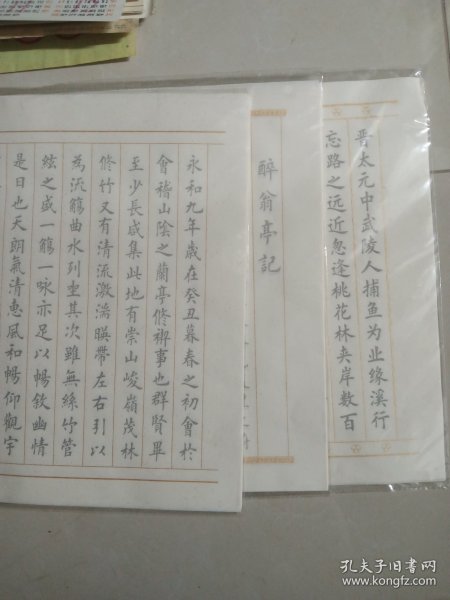 晋太元中武陵人捕鱼为业缘溪行
忘路之远近忽逢桃花林夹岸数百
醉翁亭記
永和九年歲在癸丑暮春之初會於
會稽山陰之蘭亭修禊事也群賢畢
至少長咸集此地有崇山峻嶺茂林
修竹又有清流激湍暎帶左右引以
為流觴曲水列坐其次雖無絲竹管
絃之盛一觴一咏亦足以暢敘幽情
是日也天朗氣清惠風和暢仰觀宇
孔夫子旧书网
www.kongfz.com